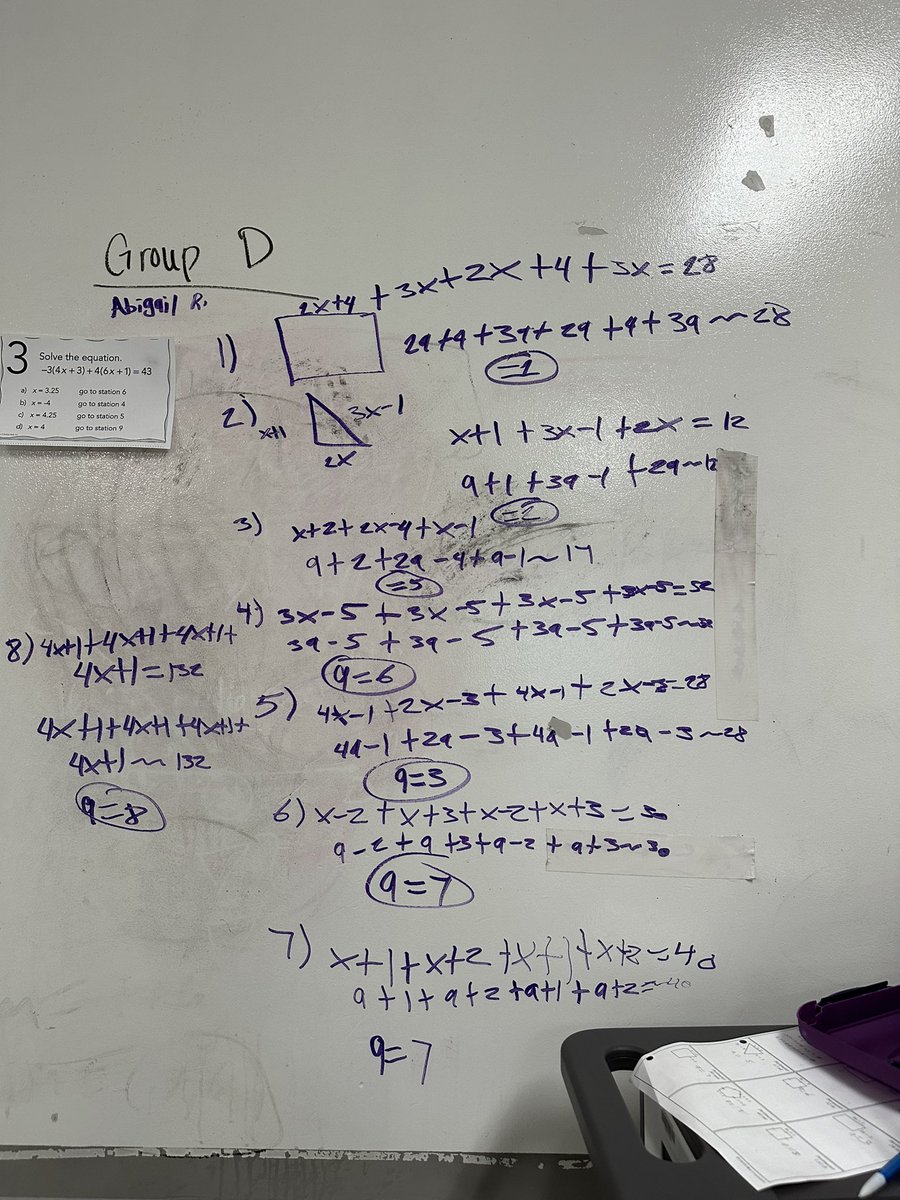 Group D
Abigail R.
3 Solve the equation.
-3(4x + 3) + 4(6x + 1) = 43
a) x = 3.25 go to station 6
b) x = -4 go to station 4
c) x = 4.25 go to station 5
d) x = 4 go to station 9
1) 2x+4 + 3x+2x+4+3x=28
2a+4+3a+2a+4+3a~28
=2
2) x+1 3x-1
2x
x+1+3x-1+2x=12
a+1+3a-1+2a~12
=2
3) x+2+2x-4+x-1
a+2+2a-4+a-1~17
=5
4) 3x-5+3x-5+3x-5+3x-5=52
3a-5+3a-5+3a-5+3a-5~52
a=6
5) 4x-1+2x-3+4x-1+2x-3=28
4a-1+2a-3+4a-1+2a-3~28
a=3
6) x-2+x+3+x-2+x+3=30
a-2+a+3+a-2+a+3~30
a=7
7) x+1+x+2+x+1+x+2=40
a+1+a+2+a+1+a+2=~40
a=7
8) 4x+1+4x+1+4x+1+
4x+1=132
4x+1+4x+1+4x+1+
4x+1~132
a=8